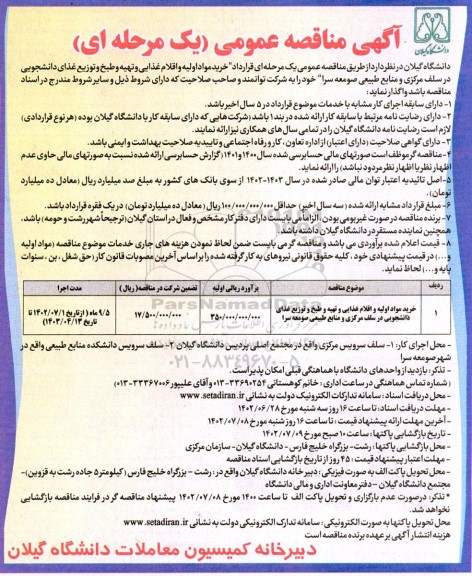 دانشگاه گیلان
آگهی مناقصه عمومی (یک مرحله ای)
دانشگاه گیلان در نظر دارد از طریق مناقصه عمومی یک مرحله ای قرارداد "خرید مواد اولیه و اقلام غذایی و تهیه و طبخ و توزیع غذای دانشجویی
در سلف مرکزی و منابع طبیعی صومعه سرا" خود را به شرکت توانمند و صاحب صلاحیت که دارای شروط ذیل و سایر شروط مندرج در اسناد
مناقصه باشد واگذار نماید:
۱- دارای سابقه اجرای کار مشابه با خدمات موضوع قرارداد در ۵ سال اخیر باشد.
۲- دارای رضایت نامه مرتبط با سابقه کار ارائه شده در بند ۱ باشد (شرکت هایی که دارای سابقه کار با دانشگاه گیلان بوده (هر نوع قراردادی)
لازم است رضایت نامه دانشگاه گیلان را در تمامی سال های همکاری نیز ارائه نمایند.
۳- دارای گواهی صلاحیت (دارای اعتبار) از اداره تعاون، کار و رفاه اجتماعی و تاییدیه صلاحیت بهداشت و ایمنی باشد.
۴- مناقصه گر موظف است صورتهای مالی حسابرسی شده سال ۱۴۰۰ و ۱۴۰۱ (گزارش حسابرسی ارائه شده نسبت به صورتهای مالی حاوی عدم
اظهار نظر یا اظهار نظر مردود نباشد) را ارائه نماید.
۵- اصل تائیدیه اعتبار توان مالی صادر شده در سال ۱۴۰۳-۱۴۰۲ از سوی بانک های کشور به مبلغ صد میلیارد ریال (معادل ده میلیارد
تومان).
۶- مبلغ قرارداد مشابه ارائه شده (سه سال اخیر) حداقل ۱۰۰/۰۰۰/۰۰۰/۰۰۰ ریال (معادل ده میلیارد تومان) در یک فقره قرارداد باشد.
۷- برنده مناقصه در صورت غیر بومی بودن، الزاماً می بایست دارای دفتر کار مشخص و فعال در استان گیلان (ترجیحاً شهر رشت و حومه) باشد،
همچنین نماینده مستقر در دانشگاه گیلان داشته باشد.
۸- قیمت اعلام شده برآوردی می باشد و مناقصه گر می بایست ضمن لحاظ نمودن هزینه های جاری خدمات موضوع مناقصه (مواد اولیه
و ...) در قیمت پیشنهادی خود، کلیه حقوق قانونی نیروهای به کار گرفته شده را بر اساس آخرین مصوبات قانون کار (حق شغل، بن، سنوات
پایه و ...) لحاظ نماید.
ردیف موضوع مناقصه برآورد ریالی اولیه تضمین شرکت در مناقصه (ریال) مدت اجرا
۱ خرید مواد اولیه و اقلام غذایی و تهیه و طبخ و توزیع غذای دانشجویی در سلف مرکزی و منابع طبیعی صومعه سرا ۳۵۰/۰۰۰/۰۰۰/۰۰۰ ۱۷/۵۰۰/۰۰۰/۰۰۰ ۹/۵ ماه (از تاریخ ۱۴۰۲/۰۷/۱ تا تاریخ ۱۴۰۳/۰۴/۱۳)
ParsNamadData
۰۲۱-۸۸۳۴۹۶۷۰-۵
- محل اجرای کار: ۱- سلف سرویس مرکزی واقع در مجتمع اصلی پردیس دانشگاه گیلان ۲- سلف سرویس دانشکده منابع طبیعی واقع در
شهر صومعه سرا
- تذکر: بازدید از واحدهای دانشگاه با هماهنگی قبلی امکان پذیر است.
(شماره تماس هماهنگی در ساعات اداری: خانم کوهستانی ۳۳۶۹۰۲۵۴-۰۱۳ و آقای علیپور ۳۳۳۶۷۰۰۶-۰۱۳)
- محل دریافت اسناد: سامانه تدارکات الکترونیک دولت به نشانی www.setadiran.ir
- مهلت دریافت اسناد: تا ساعت ۱۶ روز سه شنبه مورخ ۱۴۰۲/۰۶/۲۸
- آخرین مهلت ارائه پیشنهاد قیمت: تا ساعت ۱۶ روز شنبه مورخ ۱۴۰۲/۰۷/۰۸
- تاریخ بازگشایی پاکتها: ساعت ۱۰ صبح مورخ ۱۴۰۲/۰۷/۰۹
- محل بازگشایی پاکتها: رشت- بزرگراه خلیج فارس- دانشگاه گیلان- سازمان مرکزی
- مهلت اعتبار پیشنهاد قیمت: ۴۵ روز از تاریخ بازگشایی اسناد مناقصه
- محل تحویل پاکت الف به صورت فیزیکی: دبیرخانه دانشگاه گیلان واقع در: رشت - بزرگراه خلیج فارس (کیلومتر ۵ جاده رشت به قزوین)-
مجتمع دانشگاه گیلان - دفتر معاونت اداری و مالی دانشگاه
* تذکر: درصورت عدم بارگزاری و تحویل پاکت الف تا ساعت ۱۴۰۰ مورخ ۱۴۰۲/۰۷/۰۸ پیشنهاد مناقصه گر در فرایند مناقصه بازگشایی
نخواهد شد.
محل تحویل پاکتها به صورت الکترونیکی: سامانه تدارک الکترونیکی دولت به نشانی www.setadiran.ir
هزینه انتشار آگهی بر عهده برنده مناقصه است
دبیرخانه کمیسیون معاملات دانشگاه گیلان